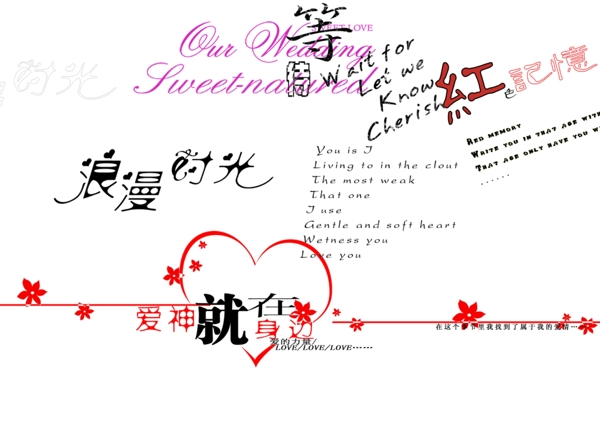 SWEET LOVE
Our Wedding
Sweet-natured
等待
Wait for
Let we
Know
Cherish
時光
紅色記憶
RED MEMORY
WRITE YOU IN THAT AGE WITH
THAT AGE ONLY HAVE YOU W
......
浪漫时光
You is I
Living to in the clout
The most weak
That one
I use
Gentle and soft heart
Wetness you
Love you
爱神就在身边
爱的力量/
LOVE/LOVE/LOVE······
在这个季节里我找到了属于我的爱情···